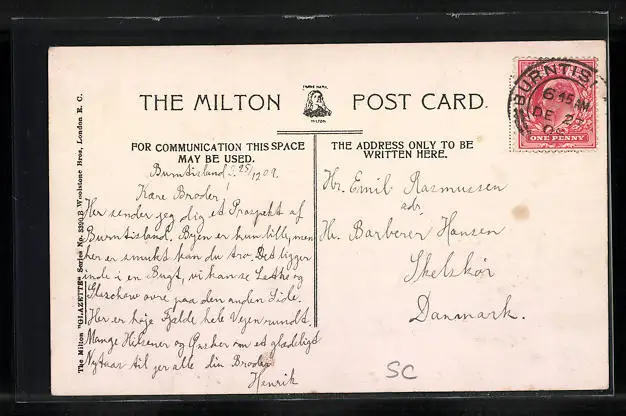 THE MILTON POST CARD.
TRADE MARK
MILTON
FOR COMMUNICATION THIS SPACE
MAY BE USED.
THE ADDRESS ONLY TO BE
WRITTEN HERE.
The Milton "GLAZETTE" Series No. Woolstone Bros, London E. C.
BURNTIS
6 45 AM
DE 2
ONE PENNY
Burntisland 25/12 09.
Kære Broder!
Her sender jeg dig et Prospekt af
Burntisland. Byen er kun lille, men
her er smukt kan du tro. Det ligger
inde i en Bugt, vi kan se Leithe og
Glaschow ovre paa den anden Side.
Her er høje Fjælde hele Vejen rundt.
Mange Hilsener og Ønsker om et glædeligt
Nytaar til jer alle din Broder
Henrik
Hr. Emil Rasmussen
adr.
Hr. Barberer Hansen
Skelskör
Danmark.
SC